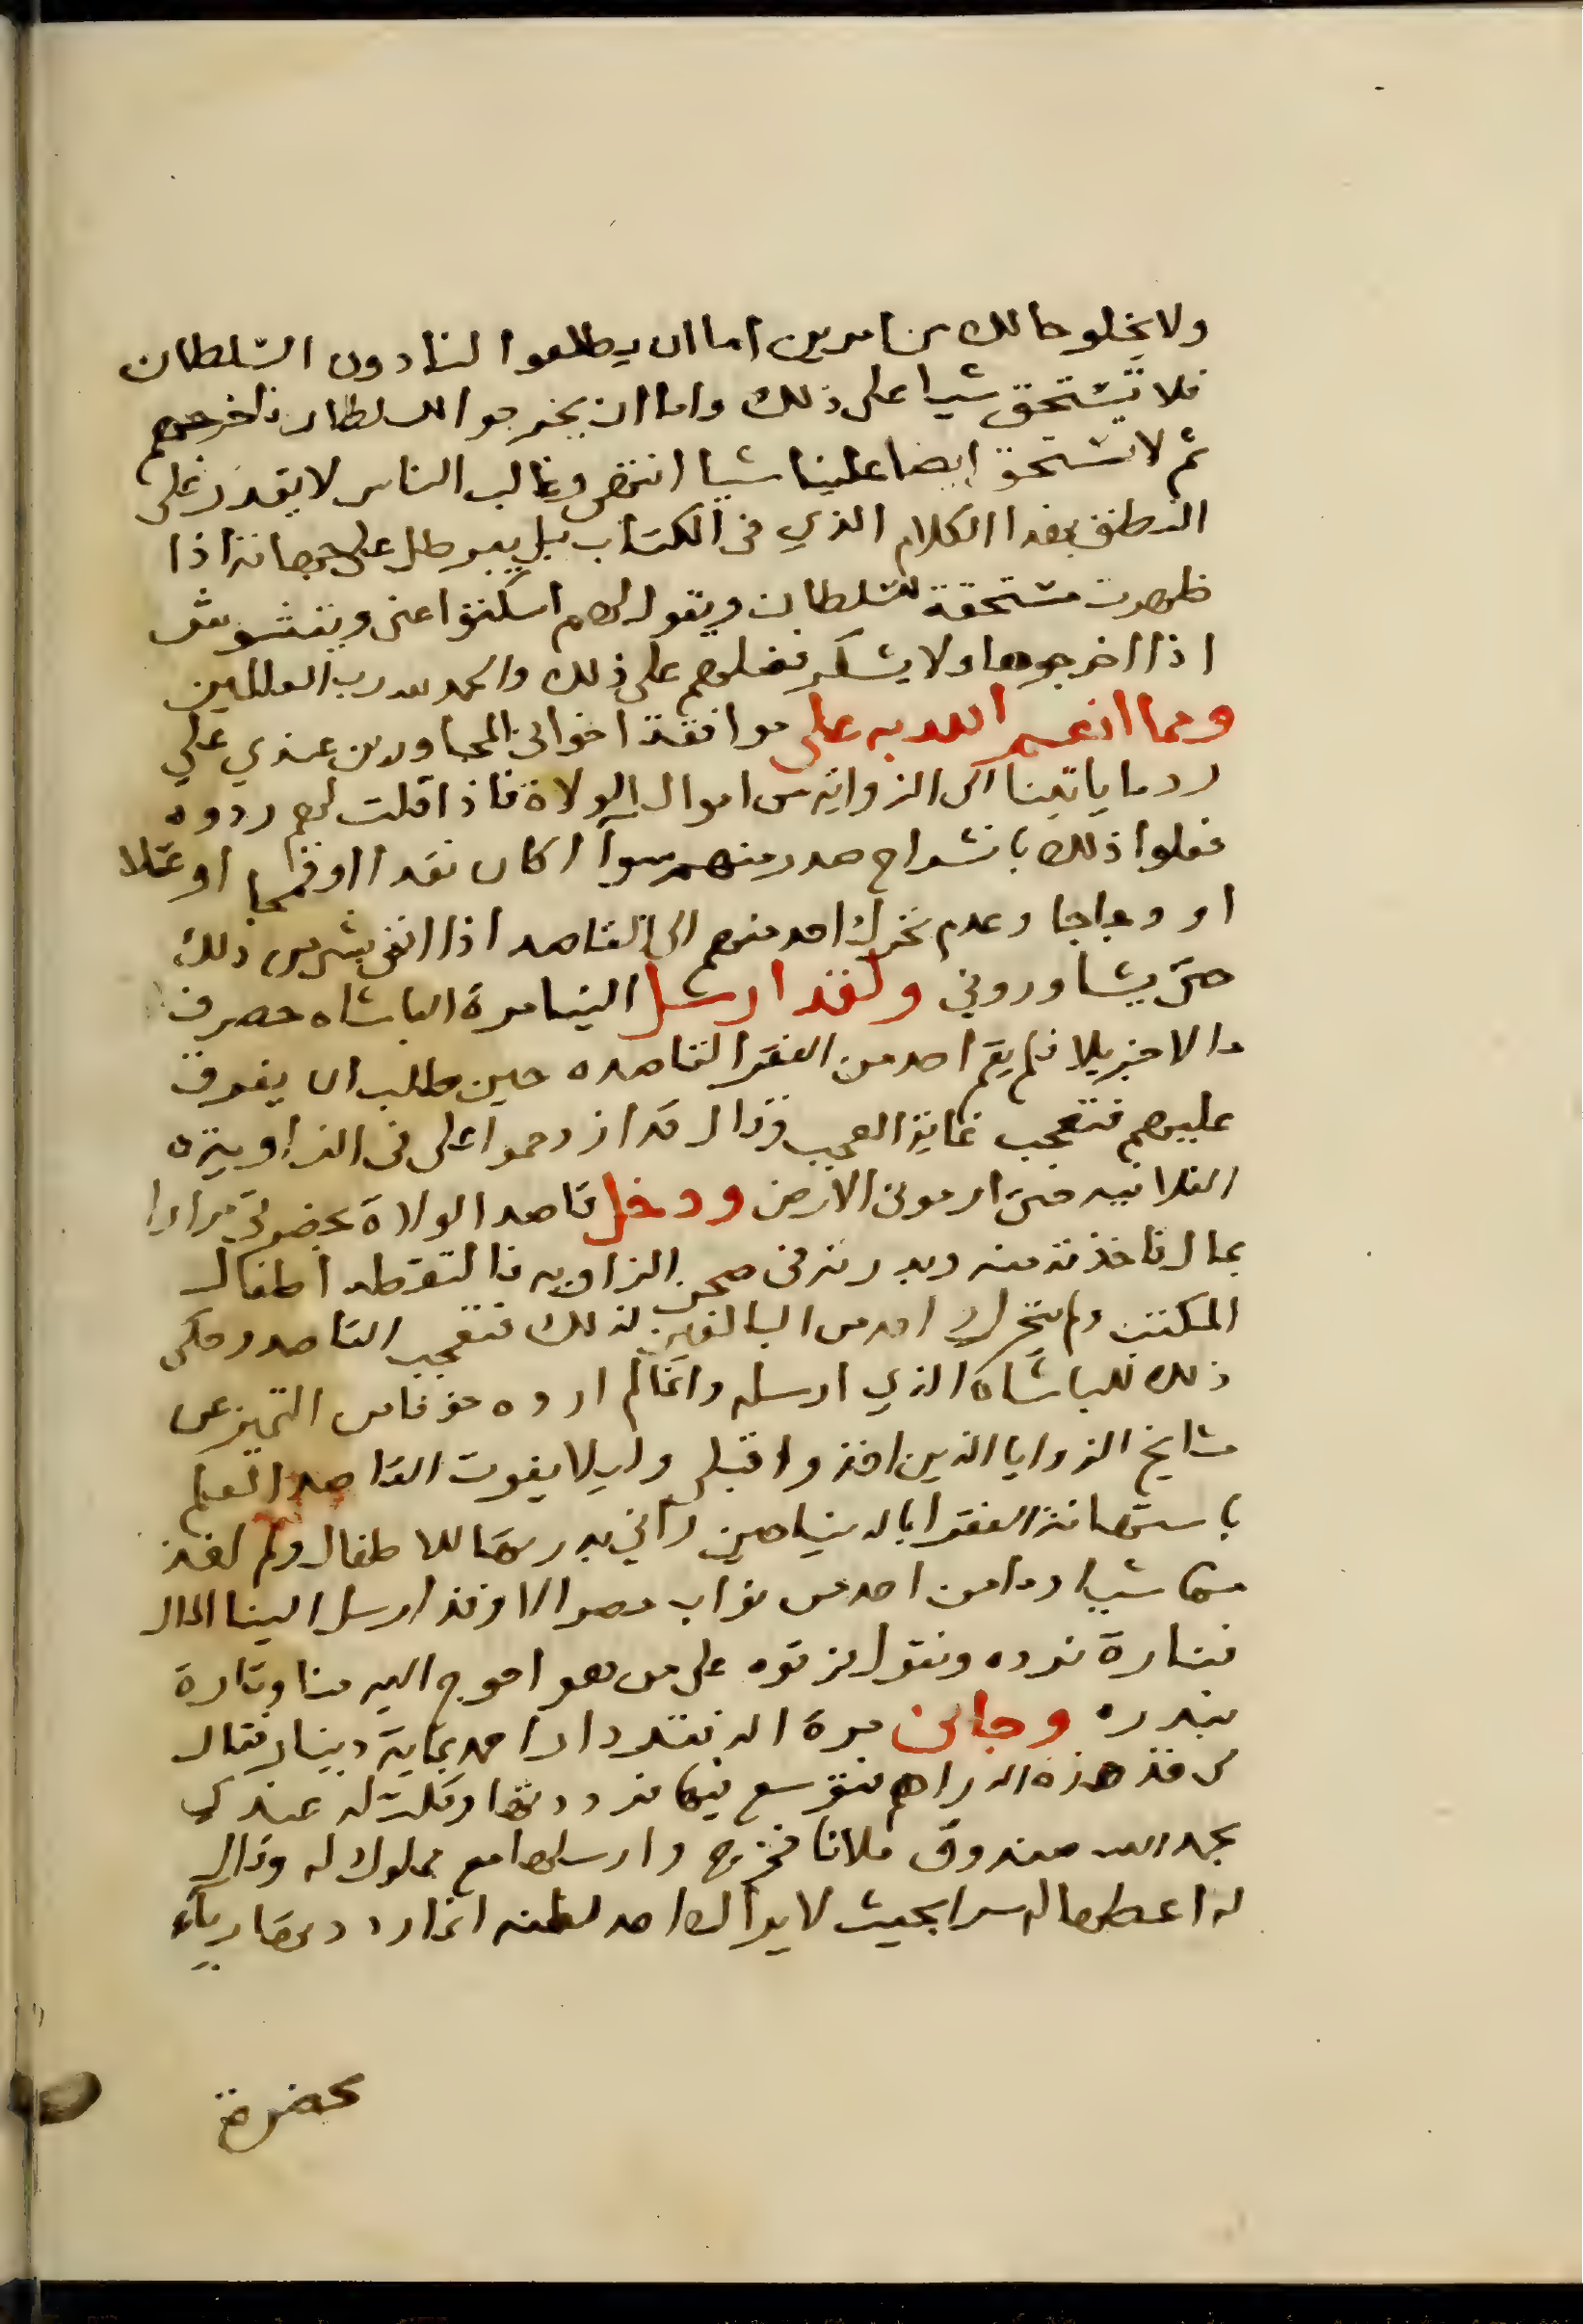 ولا يخلو حالك من امرين اما ان يطلعوا لنا دون السلطان
فلا تستحق شيا على ذلك واما ان يخرجوا للسلطان فاخرجهم
ثم لا تستحق ايضا علينا شيا انتهى وغالب الناس لا يقدر على
النطق بهذا الكلام الذي في الكتاب بل يبرطل على جهاته اذا
ظهرت مستحقة للسلطان ويقول لهم اسكتوا عني ويتشوش
اذا اخرجوها ولا يشكر فضلهم على ذلك والحمد لله رب العالمين
ومما انعم الله به على موافقة اخواني المجاورين عندي علي
رد ما ياتينا الى الزواية من اموال الولاة فاذا قلت لهم ردوه
فعلوا ذلك بانشراح صدر منهم سوآ اكان نقدا او قمحا او عسلا
او دجاجا وعدم تحرك احد منهم الى القاصد اذا اتى بشي من ذلك
حتى يشاوروني ولقد ارسل الينا مرة الباشاه بمصر
مالا جزيلا فلم يقم احد من الفقرا لقاصده حين طلب ان يفرق
عليهم فتعجب غاية العجب وقال قد ازدحموا على في الزاوية
الفلانية حتى ارموني الارض ودخل قاصد الولاة بحضرتي مرارا
بمال فاخذته منه وبدرته في صحن الزاوية فالتقطه اطفال
المكتب ولم يتحرك احد من البالغين لذلك فتعجب القاصد وحكى
ذلك للباشاه الذي ارسله وانما لم ارده خوفا من التميز عن
مشايخ الزوايا الذين اخذوا قبلى وليلا يفوت القاصد العلم
باستهانة الفقرا بالدنيا حين رآني بدرتها للاطفال ولم اخذ
منها شيا وما من احد من نواب مصر الا وقد ارسل الينا المال
فتارة نرده ونقول فرقوه على من هو احوج اليه منا وتارة
نبدره وجائني مرة الدفتردار احمد بماية دينار فقال
لي خذ هذه الدراهم فتوسع فيها فرددتها وقلت له عندي
بحمد الله صندوق ملانا فخرج وارسلها مع مملوك له وقال
له اعطها له سرا بحيث لا يراك احد لظنه اني اردها رياء
بحضرة